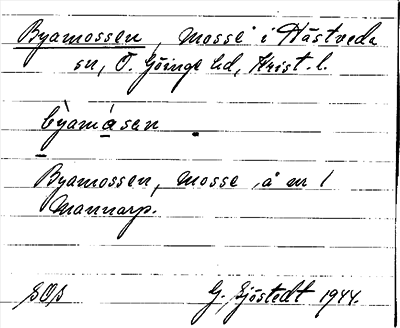 Byamossen, mosse i Hästveda
sn, Ö. Göinge hd, Krist. l.
bỳamåsen
Byamossen, mosse, å nr 1
Mannarp.
SOS G. Sjöstedt 1944.